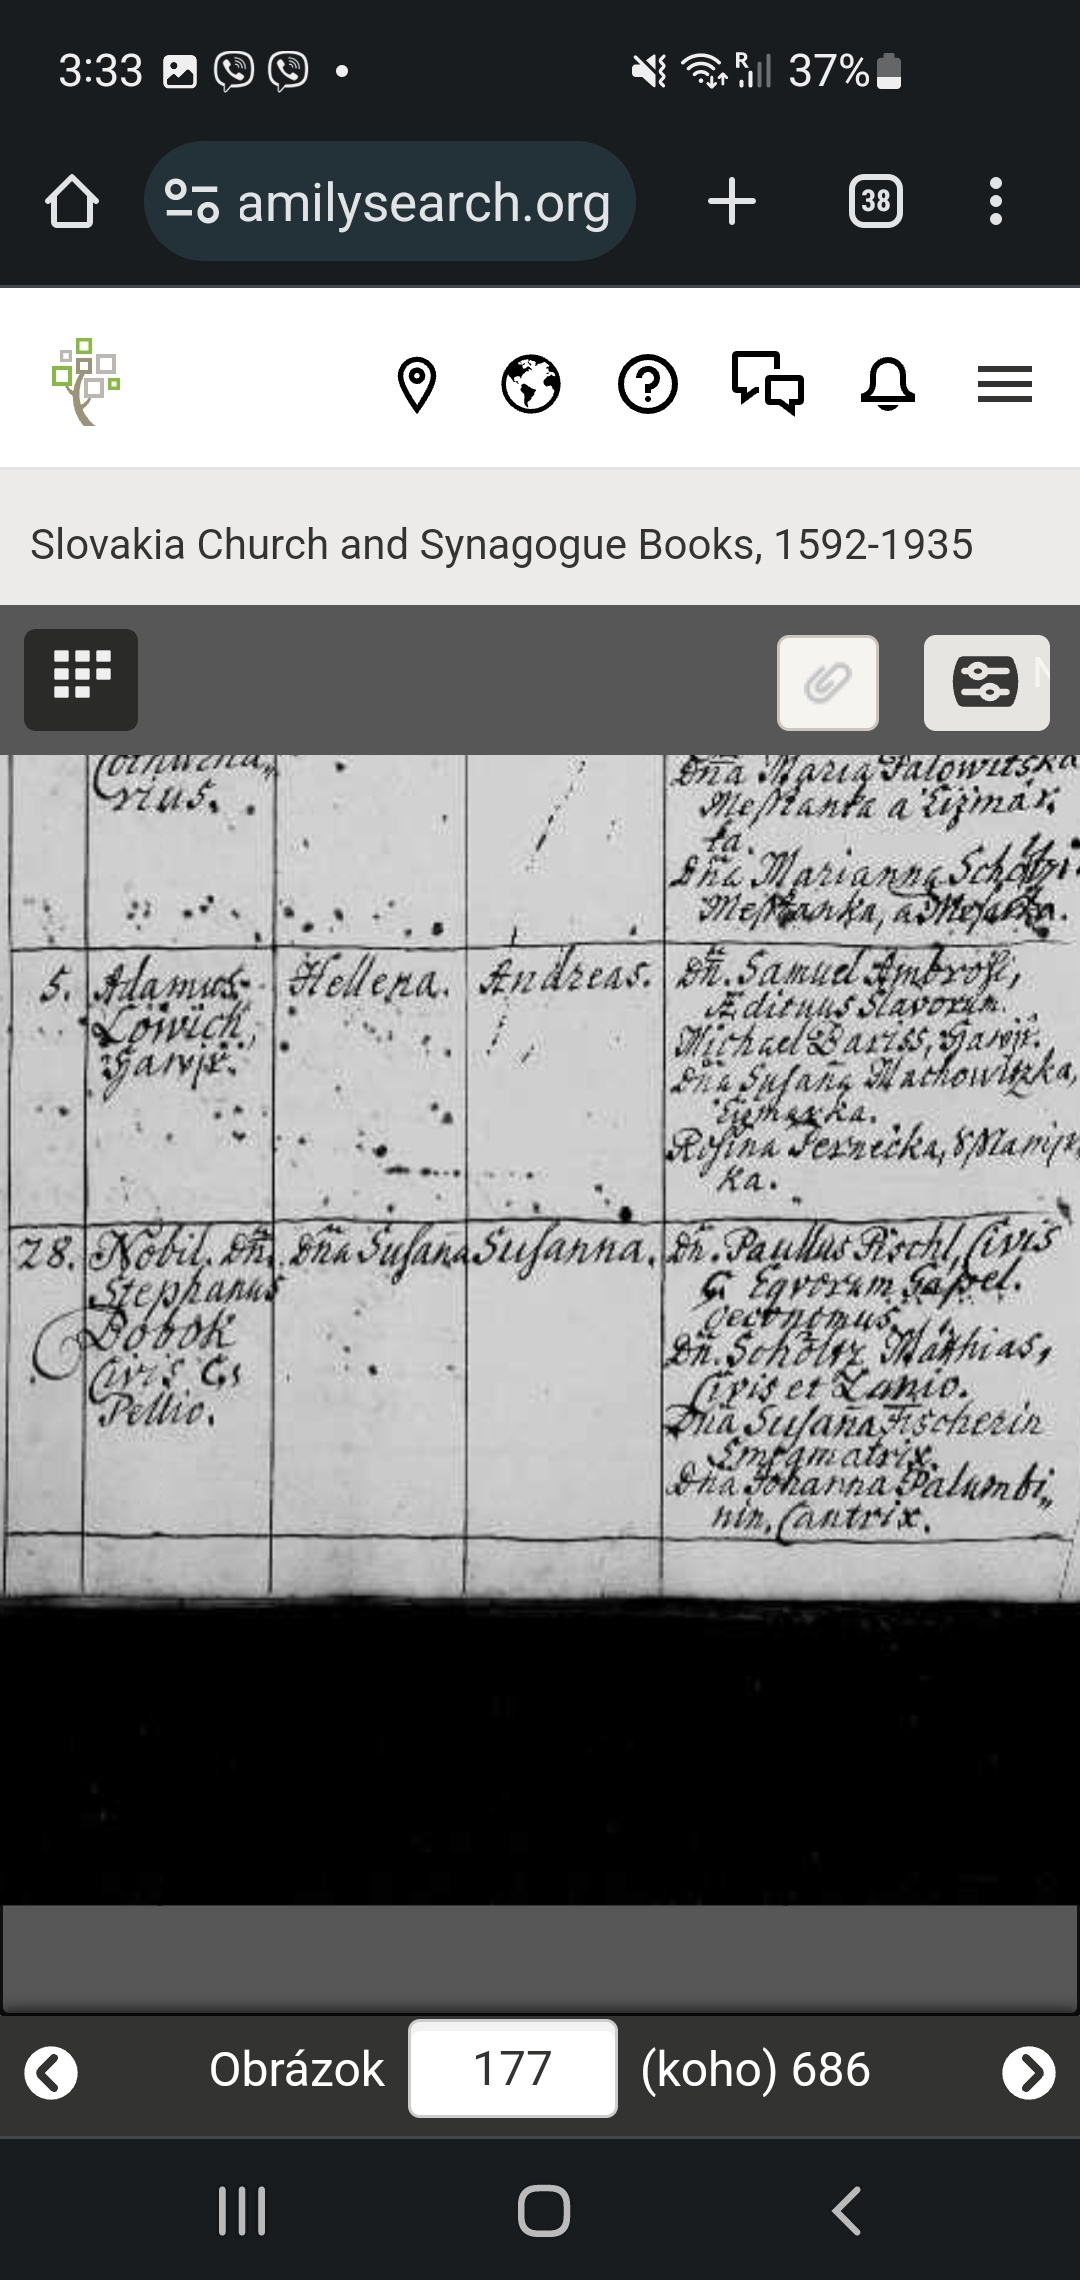 3:33
R
37%
amilysearch.org
38
Slovakia Church and Synagogue Books, 1592-1935
rius.
Dña Maria Palowitska
Messtanka a Čizmár,
ka.
Dña Marianna
5.
Adamus
Löwich,
Hellena.
Andreas.
Dn. Samuel Ambrosi,
Ædituus Slavorum.
Michael Bariss,
Dña Susaña Machowitzka,
Rosina
ka.
28.
Nobil. Dñ.
Stephanus
Bobok
Civis C,
Pellio.
Dña Susana
Susanna.
Dn. Paullus Pischl, Civis
C. Eqvorum
oeconomus.
Dn. Scholtz Matthias,
Civis et Lanio.
Dña Susaña Fischerin
Dña Johanna Palumbi„
nin, Cantrix.
Obrázok 177 (koho) 686